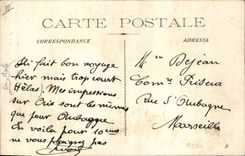 CARTE POSTALE
CORRESPONDANCE
ADRESSE
J'ai fait bon voyage
hier mais trop court
Hélas. Mes impressions
sur Aix sont les mêmes
que pour Aubagne
En voila pour 10 cms
ne vous plaignez pas
Mr Dejean
Comre Priseur
Rue d'Aubagne
Marseille